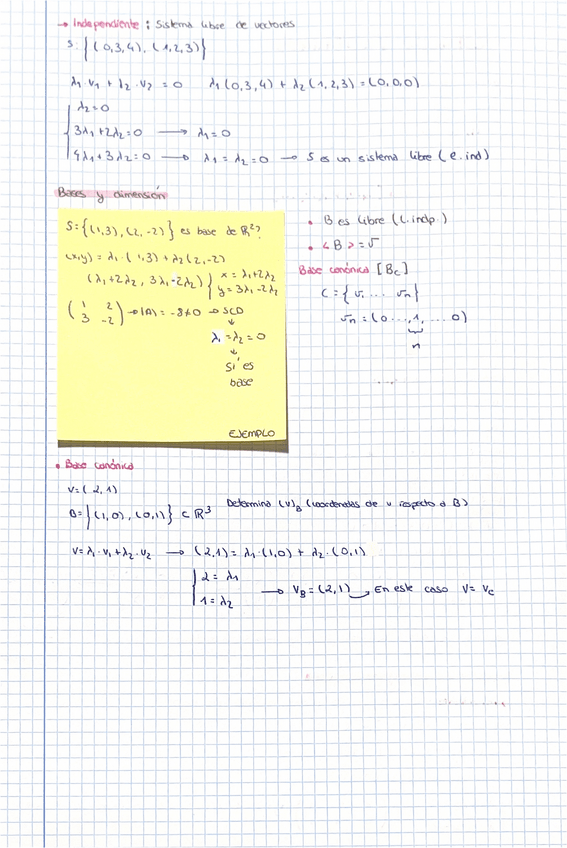 → Independiente : Sistema libre de vectores
S: { (0,3,4), (1,2,3) }
λ₁·v₁ + λ₂·v₂ = 0   λ₁(0,3,4) + λ₂(1,2,3) = (0,0,0)
λ₂=0
3λ₁+2λ₂=0 → λ₁=0
4λ₁+3λ₂=0 → λ₁=λ₂=0 → S es un sistema libre (e.ind)
Bases y dimensión
S={(1,3),(2,-2)} es base de ℝ²?
(x,y) = λ₁·(1,3)+λ₂(2,-2)
(λ₁+2λ₂, 3λ₁-2λ₂) { x=λ₁+2λ₂
y=3λ₁-2λ₂
( 1 2
3 -2 ) → |A| = -8≠0 → SCD
↓
λ₁=λ₂=0
↓
Sí es
base
EJEMPLO
• B es libre (l.indp.)
• <B>=V
Base canónica [Bc]
C={v₁ ... vn}
vn=(0...,1,...0)
n
• Base canónica
V=(2,1)
B={(1,0),(0,1)} ⊂ ℝ³   Determina (v)B (coordenadas de v respecto a B)
V=λ₁·v₁+λ₂·v₂ → (2,1)=λ₁·(1,0)+λ₂·(0,1)
2=λ₁
1=λ₂ → VB=(2,1) → En este caso V=Vc